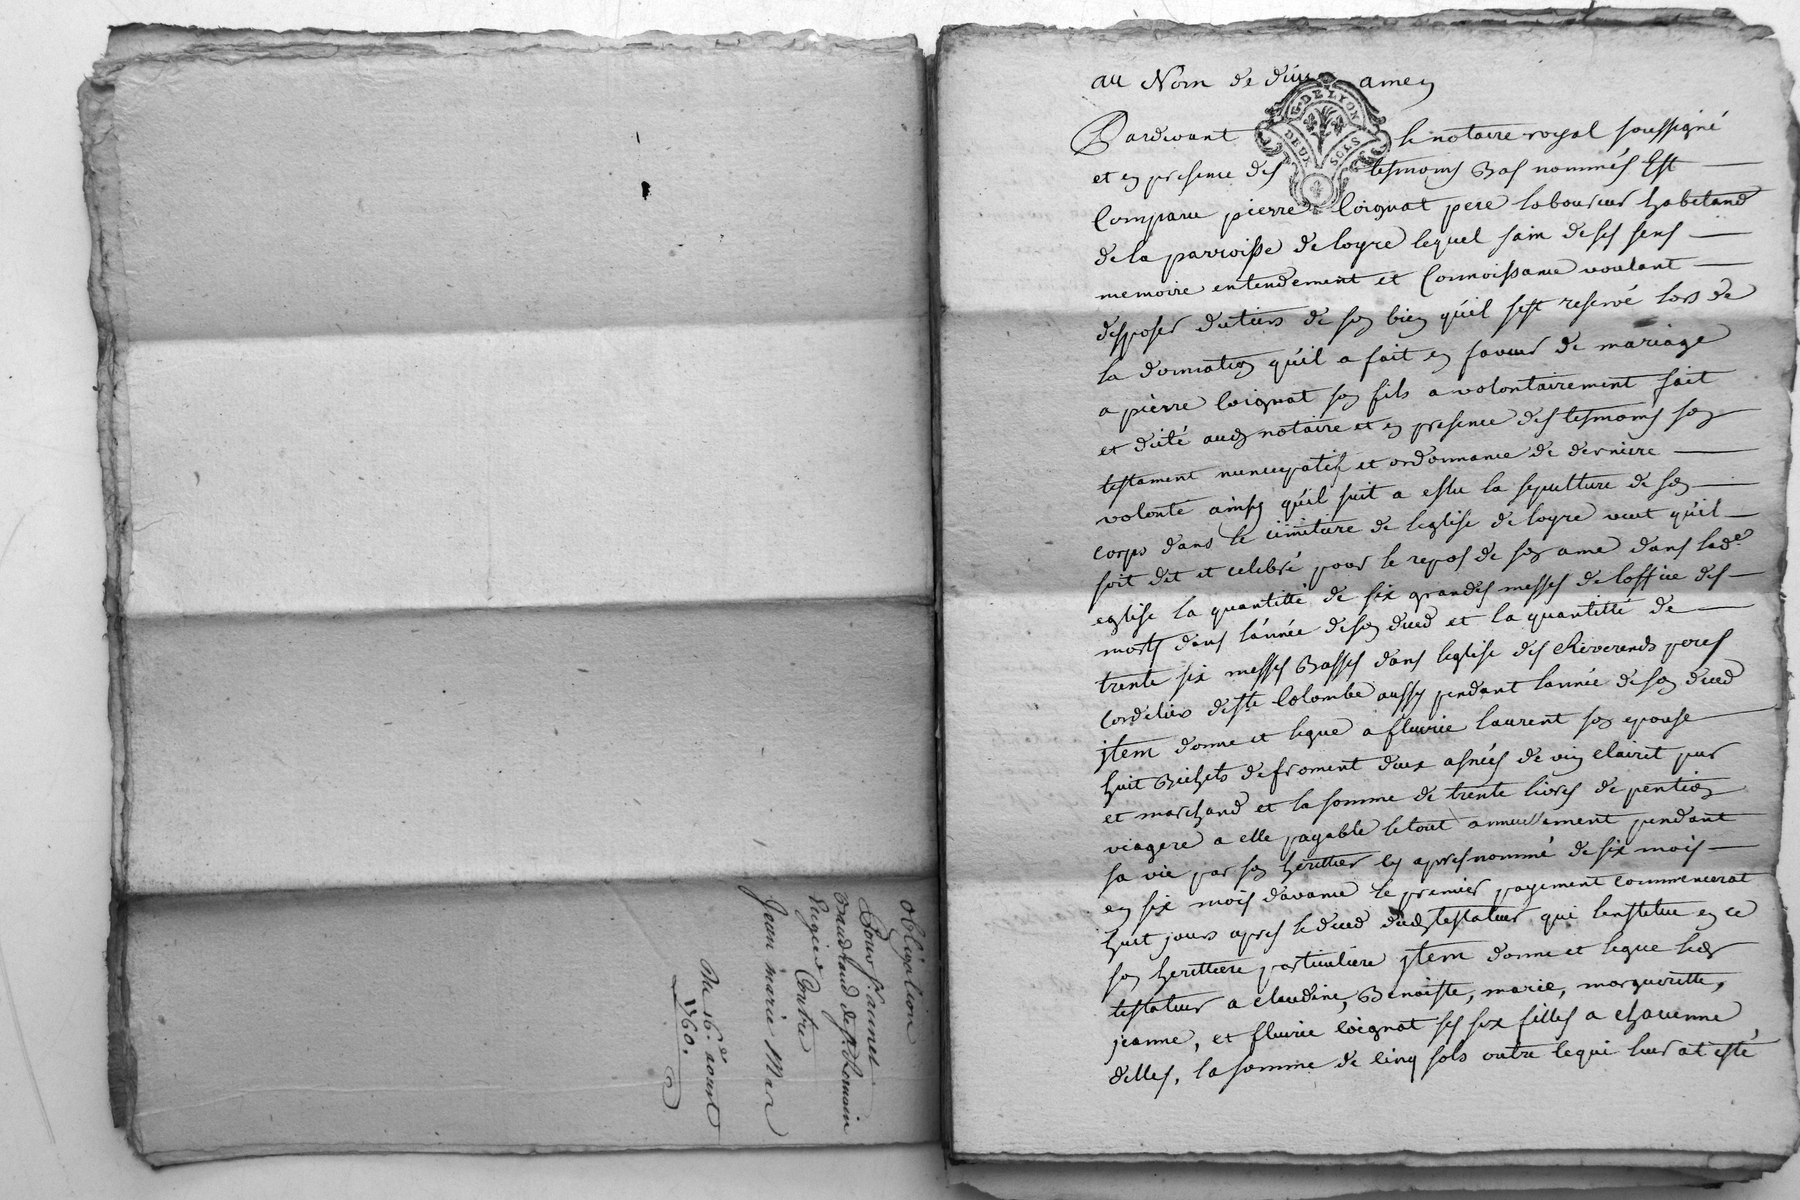 obligation
Pour s.r aimes
baudrand de st. Romain
Contre
Jean marie Mar
Du 16.e aoust
1760.
au Nom de dieu amen
G. DE LYON
DEUX SOLS
Pardevant le notaire royal soussigné
et en presence des tesmoins bas nommés Est
Comparu pierre Coignat pere laboureur habitand
de la parroisse de loyre lequel sain de ses sens
memoire entendement et Connoissance voulant
disposer du tiers de son bien qu'il sest reservé lors de
la donnation qu'il a fait en faveur de mariage
a pierre Coignat son fils a volontairement fait
et dicté aud notaire et en presence des tesmoins son
testament nuncupatif et ordonnance de derniere
volonté ainsy qu'il suit a eslu la sepulture de son
corps dans le cimitiere de leglise de loyre veut qu'il
soit dit et celebré pour le repos de son ame dans lad.e
eglise la quantitté de six grandes messes de loffice des
morts dans lánnée de son deced et la quantitté de
trente six messes basses dans leglise des Reverends peres
Cordeliers de ste Colombe aussy pendant lannée de son deced
jtem donne et legue a fleurie laurent son epouse
huit bichets de froment deux asnées de vin clairet pur
et marchand et la somme de trente livres de pention
viagere a elle payable le tout annuellement pendant
sa vie par son herittier cy apres nommé de six mois
en six mois d'avance le premier payement commencerat
huit jours apres le deced dud testateur qui l'institue en ce
son herittiere particuliere jtem donne et legue led
testateur a claudine, Benoiste, marie, margueritte,
jeanne, et fleurie Coignat ses six filles a chacunne
delles, la somme de Cinq sols outre le qui leur at esté